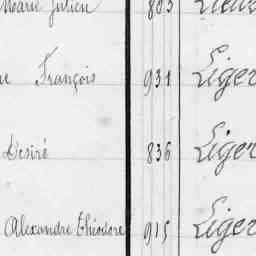 Marie Julien 803
François 931 Liger
Desiré 836 Liger
Alexandre théodore 915 Liger